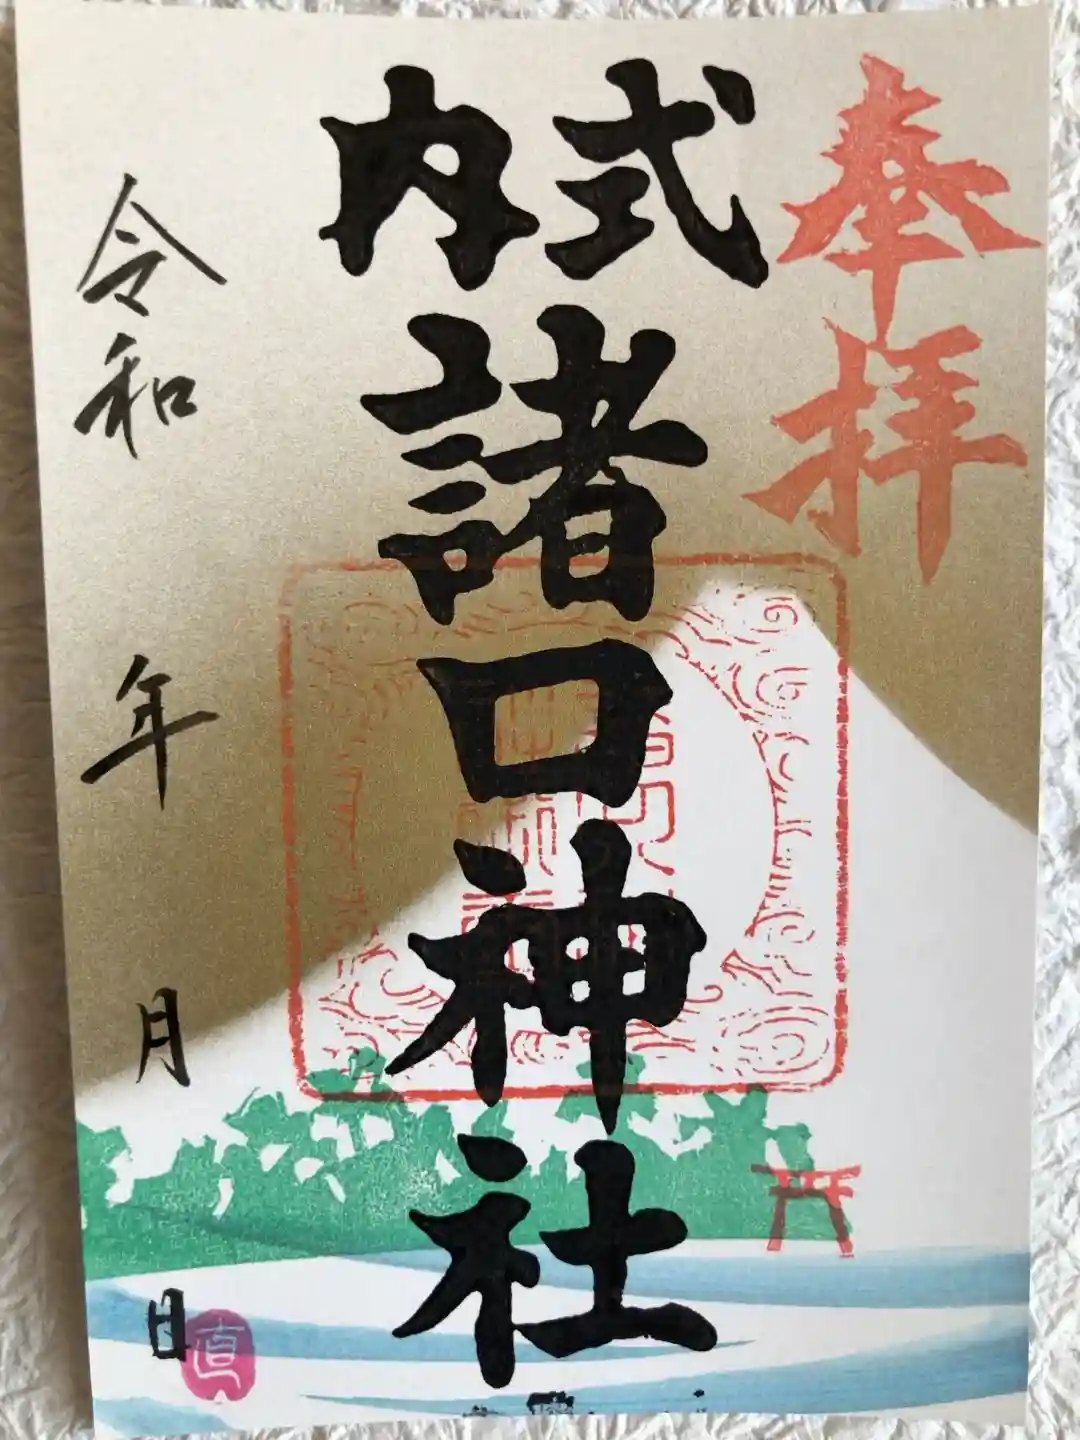 奉拝
式内
諸口神社
令和 年 月 日
眞